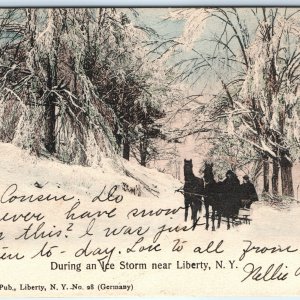 Cousin
ever have snow
this? I was just
to-day. Love to all from
During an Ice Storm near Liberty, N. Y.
Nellie
Pub., Liberty, N. Y. No. 28 (Germany)